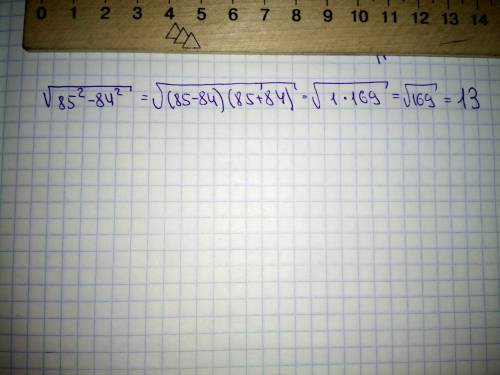 0 1 2 3 4 5 6 7 8 9 10 11 12 13 14
√85² - 84² = √(85-84)(85+84) = √1·169 = √169 = 13